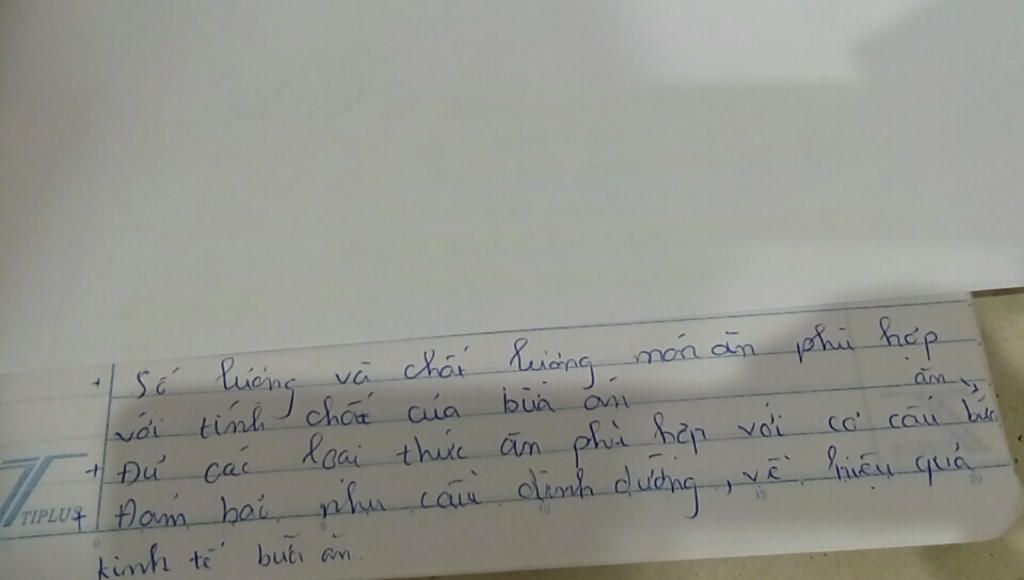 + Số lượng và chất lượng món ăn phù hợp
với tính chất của bữa ăn
ăn
+ Đủ các loại thức ăn phù hợp với cơ cấu bữa
+ Đảm bảo nhu cầu dinh dưỡng, về hiệu quả
kinh tế bữa ăn.
TIPLUS
0 5 10 15 20